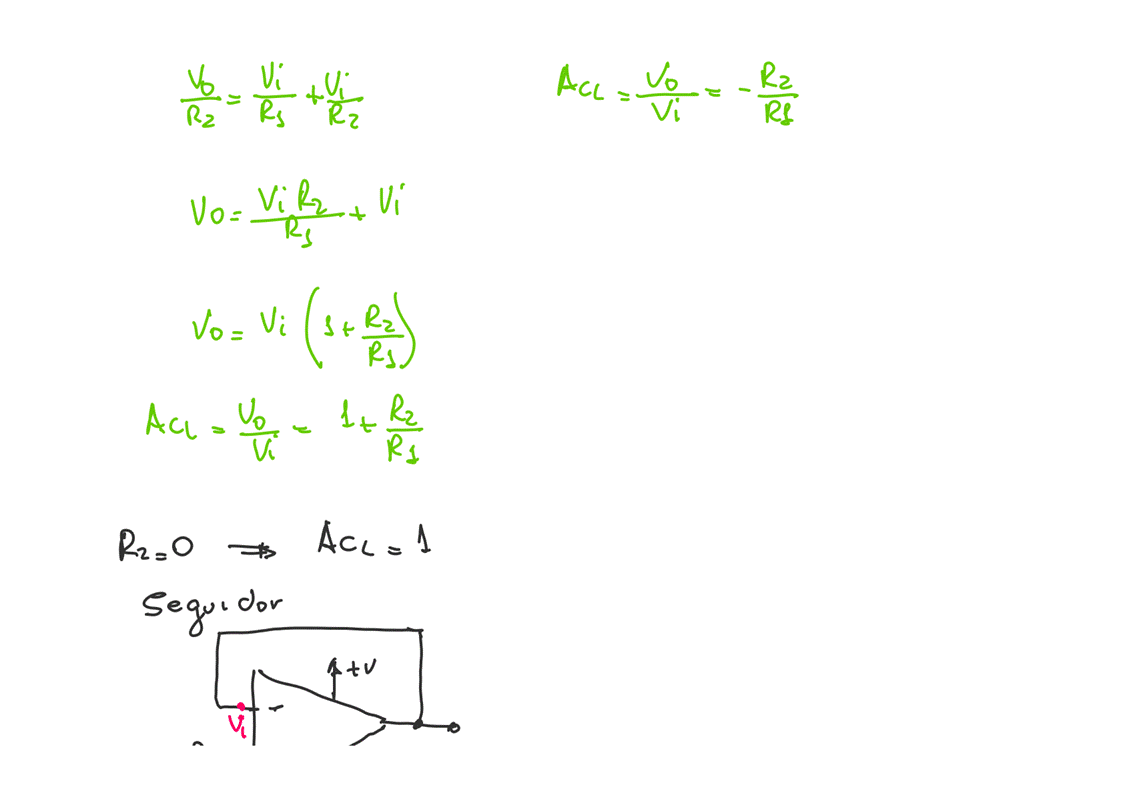 Vo/R2 = Vi/R1 + Vi/R2
ACL = Vo/Vi = - R2/R1
Vo = Vi R2/R1 + Vi
Vo = Vi (1 + R2/R1)
ACL = Vo/Vi = 1 + R2/R1
R2 = 0 ⇒ ACL = 1
Seguidor
+V
-
Vi